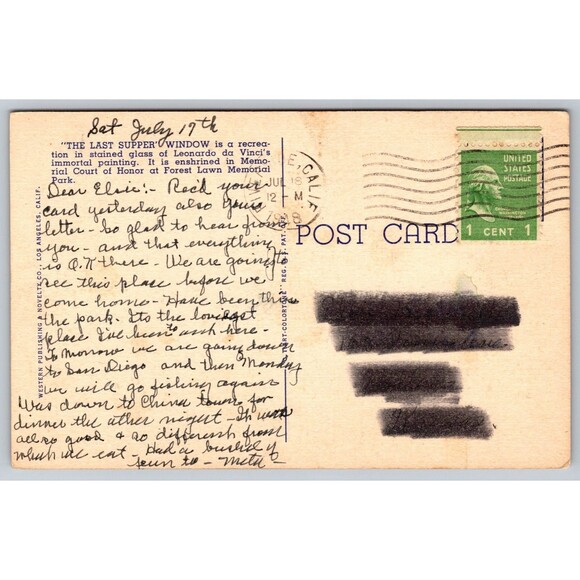 Sat July 17th
"THE LAST SUPPER" WINDOW is a recrea-
tion in stained glass of Leonardo da Vinci's
immortal painting. It is enshrined in Memo-
rial Court of Honor at Forest Lawn Memorial
Park.
Dear Elsie:- Rec'd your
card yesterday also your
letter- So glad to hear from
you- and that everything
is O.K there- We are going to
see this place before we
come home- Have been thru
the park. Its the loveliest
place I've been to out here-
To Morrow we are going down
to San Diego and then Monday
we will go fishing again
Was down to China town for
dinner the other night- It was
all so good & so different from
what we eat- Had a bushel of
fun to- Meta-
WESTERN PUBLISHING & NOVELTY CO., LOS ANGELES, CALIF.
"C.T. ART-COLORTONE" REG. U.S. PAT. OFF.
CALIF.
JUL 18
12 M
POST CARD
UNITED
STATES
POSTAGE
1 CENT 1